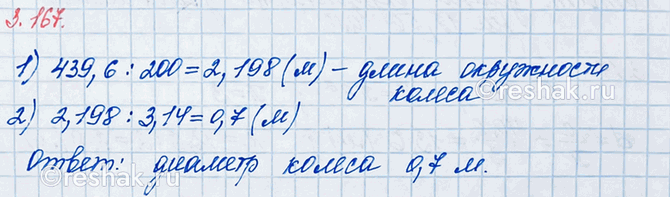 3.167.
1) 439,6 : 200 = 2,198 (м) – длина окружности
колеса
©reshak.ru
2) 2,198 : 3,14 = 0,7 (м)
Ответ: диаметр колеса 0,7 м.